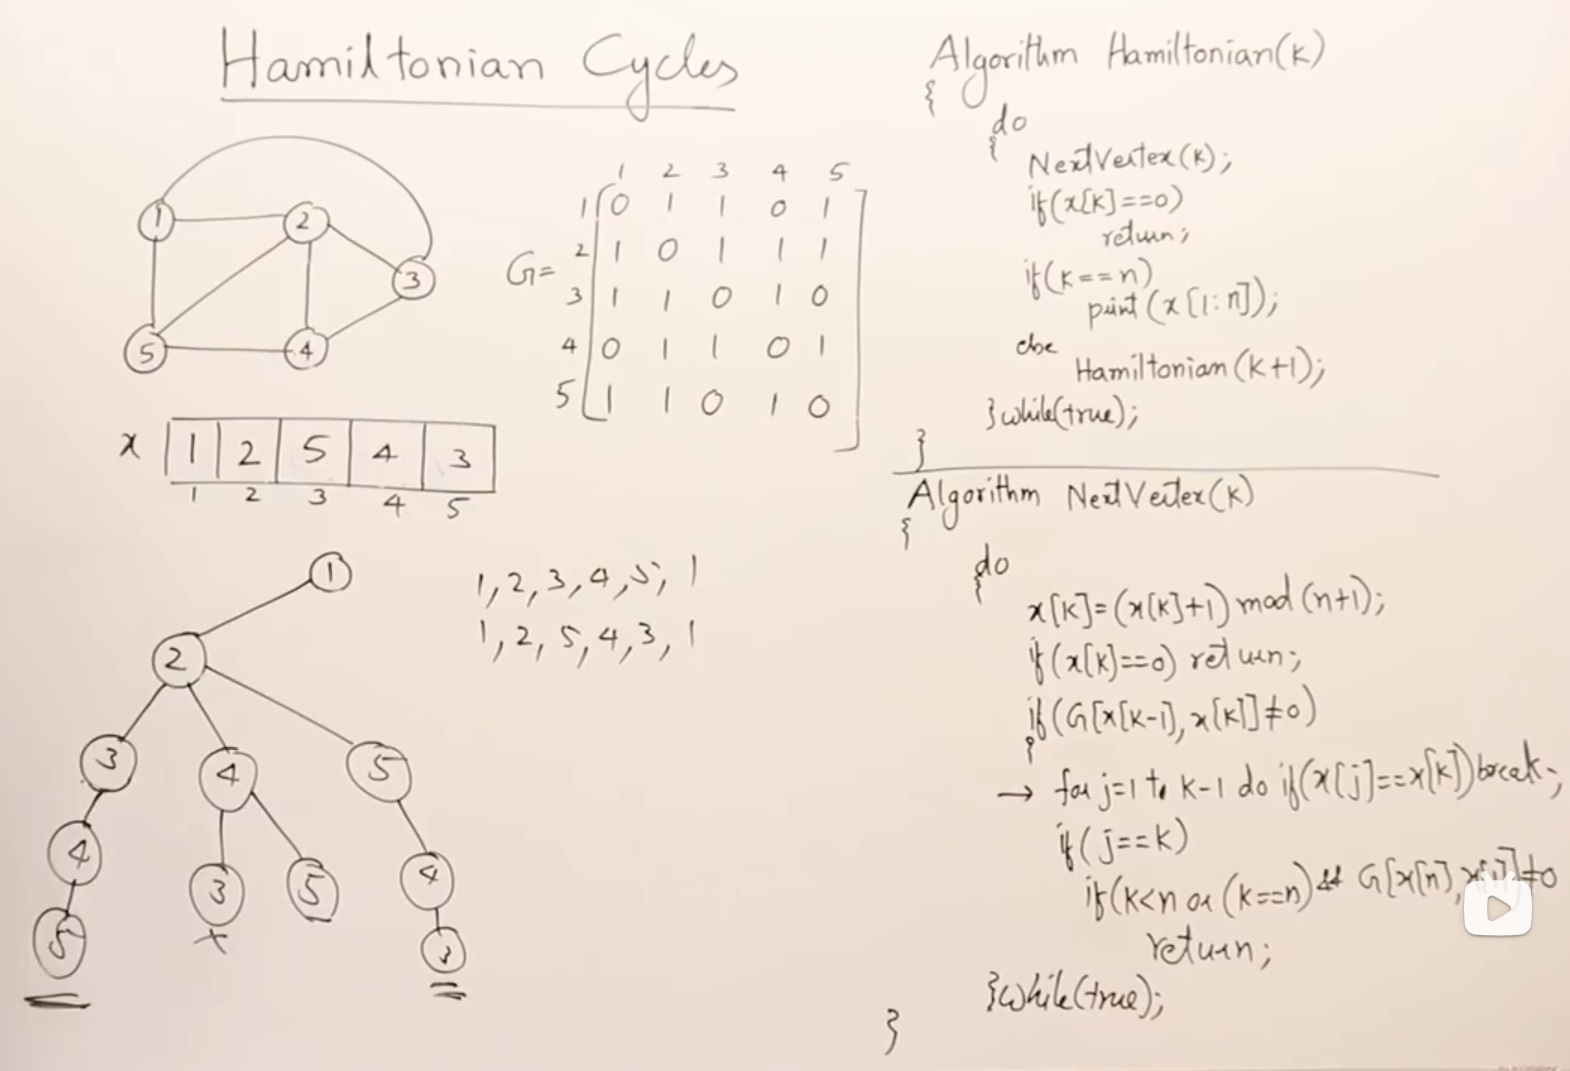 Hamiltonian Cycles
1
2
3
5
4
1 2 3 4 5
G=
1 0 1 1 0 1
2 1 0 1 1 1
3 1 1 0 1 0
4 0 1 1 0 1
5 1 1 0 1 0
x 1 2 5 4 3
1 2 3 4 5
1
2
3 4 5
4 3 5 4
x
5 3
1, 2, 3, 4, 5, 1
1, 2, 5, 4, 3, 1
Algorithm Hamiltonian(k)
{
do
{
NextVertex(k);
if(x[k]==0)
return;
if(k==n)
print(x[1:n]);
else
Hamiltonian(k+1);
}while(true);
}
Algorithm NextVertex(k)
{
do
{
x[k]=(x[k]+1) mod (n+1);
if(x[k]==0) return;
if(G[x[k-1], x[k]]≠0)
{
→ for j=1 to k-1 do if(x[j]==x[k]) break;
if(j==k)
if(k<n or (k==n) && G[x[n], x[1]]≠0
return;
}while(true);
}